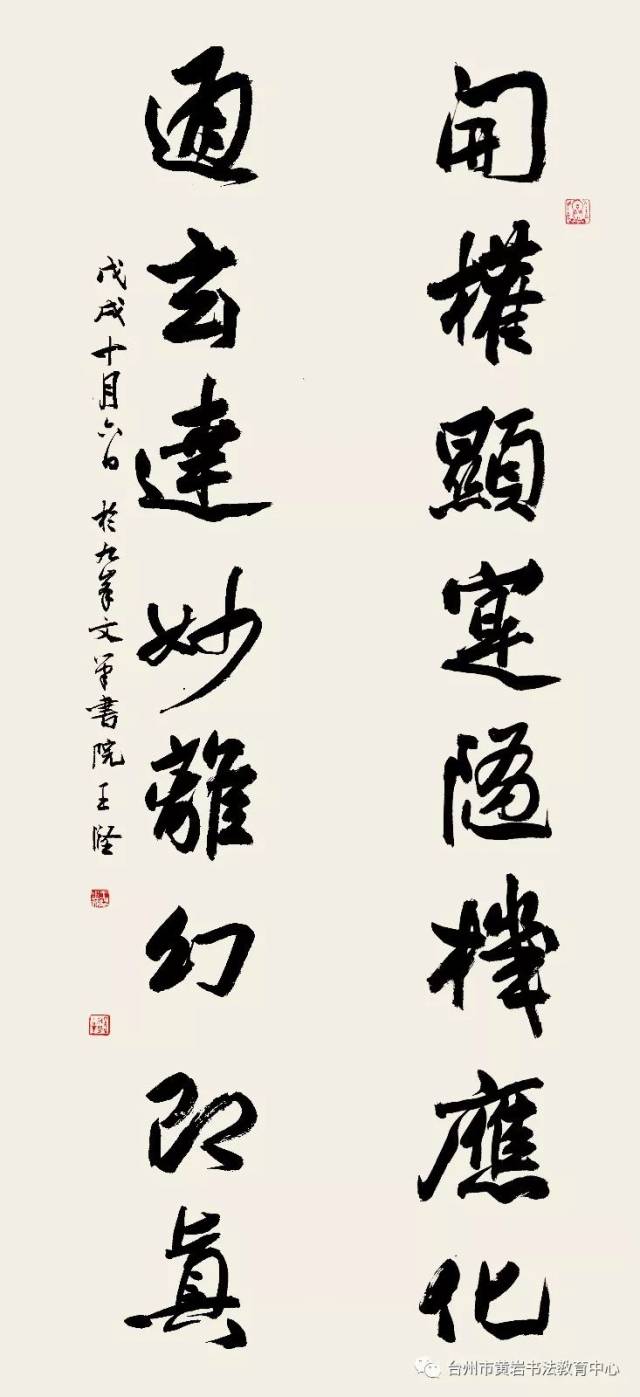 開權顯寔隨機應化
通玄達妙離幻即真
戊戌十月六日於九峯文筆書院王堅
台州市黄岩书法教育中心